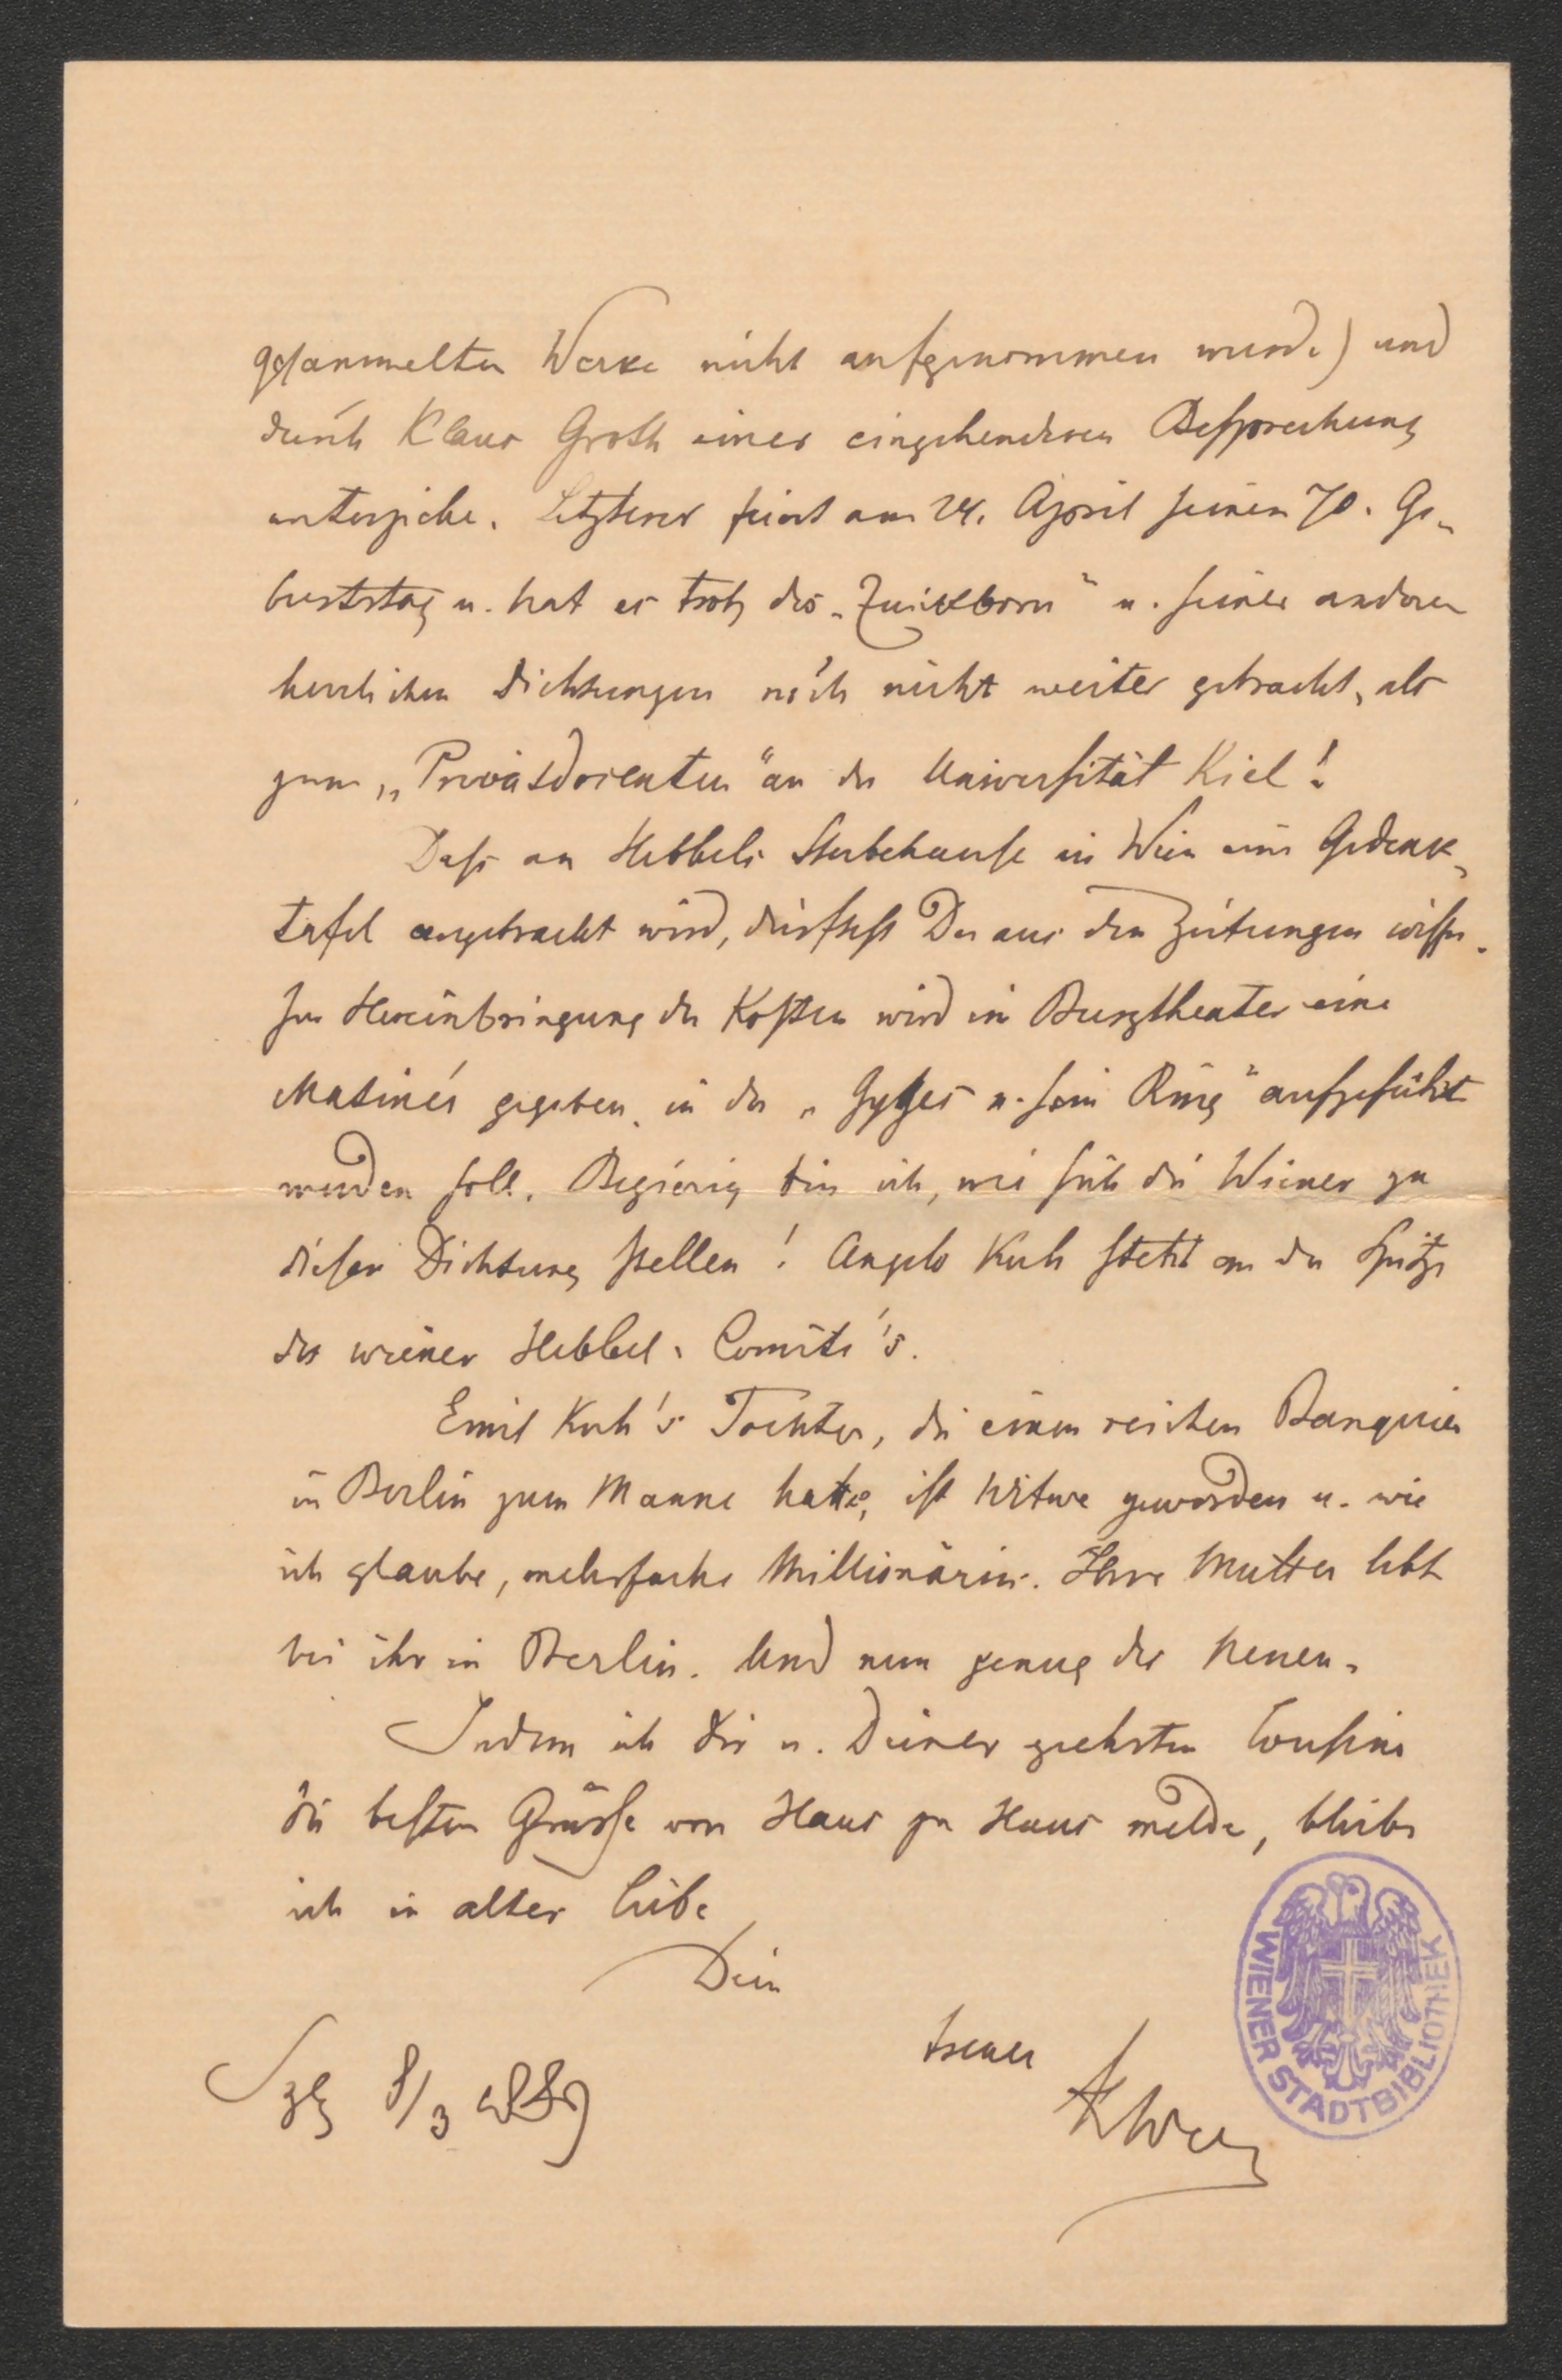 gesammelten Werke nicht aufgenommen wurde) und
durch Klaus Groth einer eingehenderen Besprechung
unterziehe. Letzterer feiert am 24. April seinen 70. Ge-
burtstag u. hat es trotz des „Quickborn" u. seiner anderen
herrlichen Dichtungen noch nicht weiter gebracht, als
zum „Privatdocenten" an der Universität Kiel!
Dass an Hebbels Sterbehause in Wien eine Gedenk-
tafel angebracht wird, dürftest Du aus den Zeitungen wissen.
Zur Hereinbringung der Kosten wird im Burgtheater eine
Matinée gegeben, in der „Gyges u. sein Ring" aufgeführt
werden soll. Begierig bin ich, wie sich die Wiener zu
dieser Dichtung stellen! Angelo Kuh steht an der Spitze
des wiener Hebbel-Comité's.
Emil Kuh's Tochter, die einen reichen Banquier
in Berlin zum Manne hatte, ist Witwe geworden u. wie
ich glaube, mehrfache Millionärin. Ihre Mutter lebt
bei ihr in Berlin. Und nun genug des Neuen.
Indem ich Dir u. Deiner geehrten Cousine
die besten Grüsse von Haus zu Haus melde, bleibe
ich in alter Liebe
Dein
treuer
Szbg 8/3 1889
WIENER STADTBIBLIOTHEK